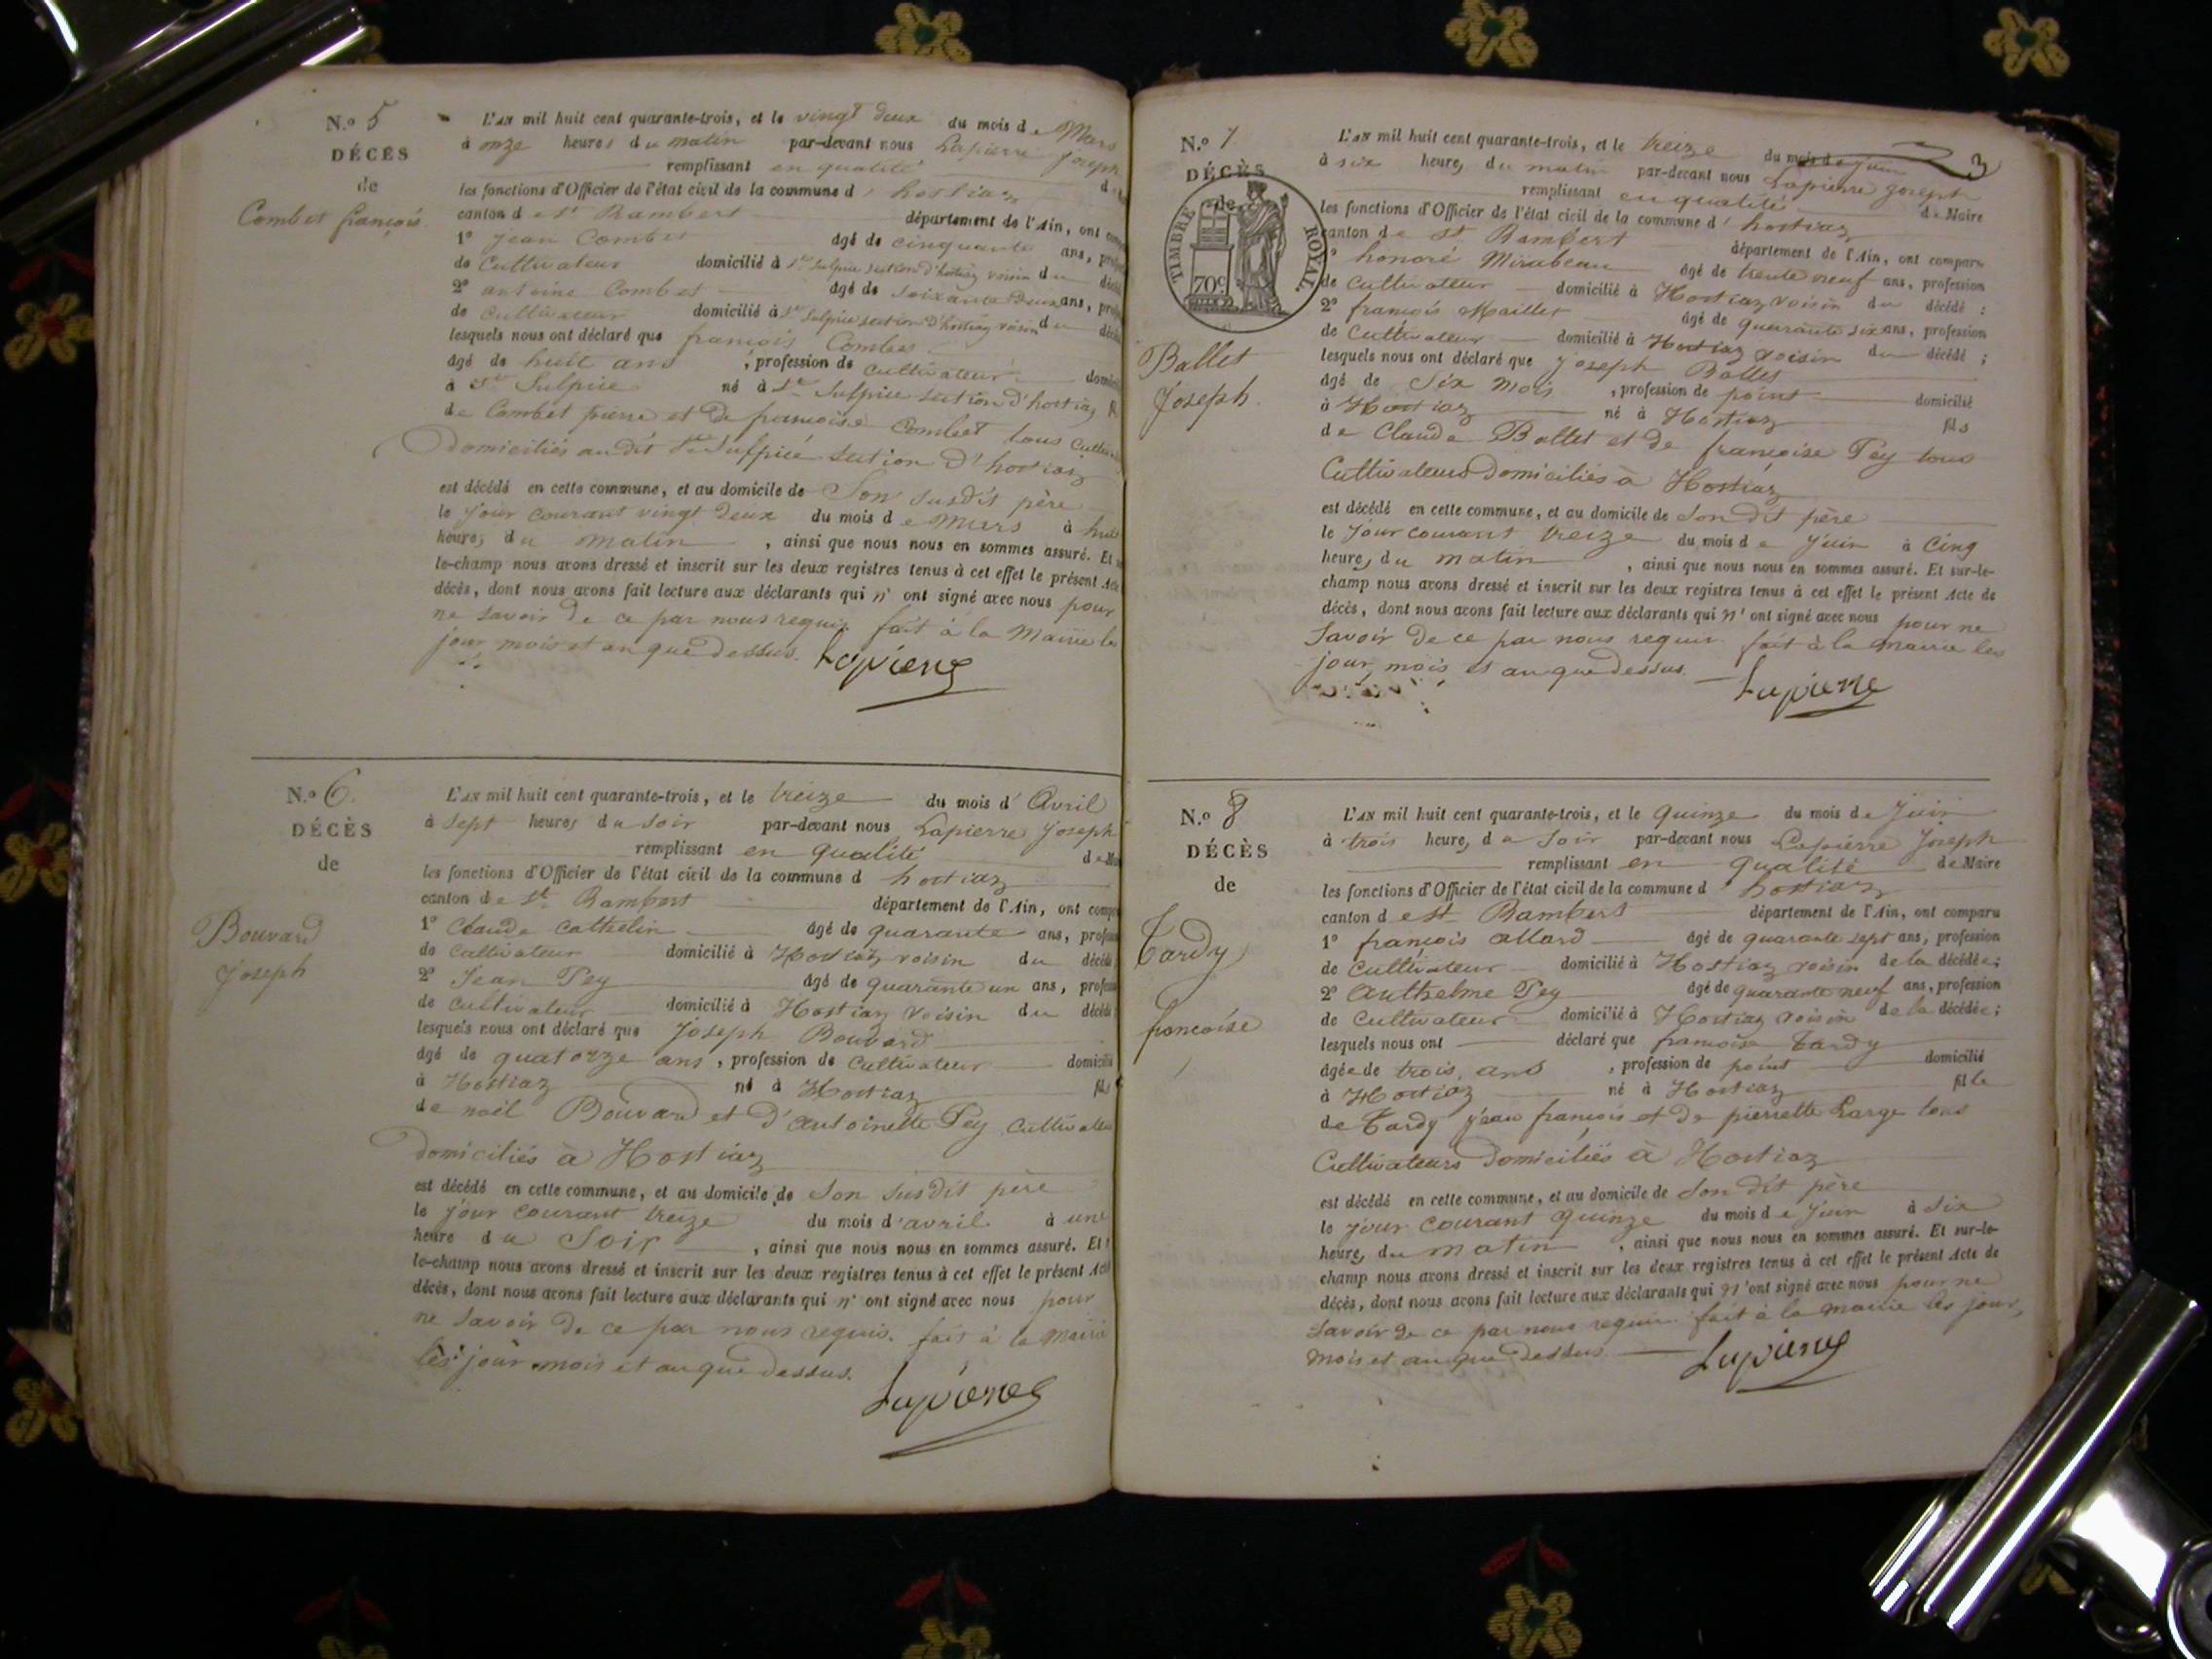 N.º 5
DÉCÈS
de
Combet françois
L'AN mil huit cent quarante-trois, et le vingt deux du mois de Mars
à onze heures du matin par-devant nous Lapierre Joseph
remplissant en qualité d
les fonctions d'Officier de l'état civil de la commune d'hostiaz
canton de St Rambert département de l'Ain, ont
1º jean Combet âgé de cinquante ans,
de Cultivateur domicilié à St Sulpice section d'hostiaz voisin du
2º antoine Combet âgé de soixante deux ans,
de Cultivateur domicilié à St Sulpice section d'hostiaz voisin du
lesquels nous ont déclaré que françois Combet
âgé de huit ans, profession de cultivateur
à St Sulpice né à St Sulpice section d'hostiaz
de Combet pierre et de françoise Combet tous
Domiciliés audit St Sulpice section d'hostiaz
est décédé en cette commune, et au domicile de Son susdit père
le jour courant vingt deux du mois de Mars à
heures du matin, ainsi que nous nous en sommes assuré. Et
le-champ nous avons dressé et inscrit sur les deux registres tenus à cet effet le présent Acte
décès, dont nous avons fait lecture aux déclarants qui n'ont signé avec nous pour
ne savoir de ce par nous requis fait à la Mairie les
jour mois et an que dessus. Lapierre
N.º 6.
DÉCÈS
de
Bouvard
Joseph
L'AN mil huit cent quarante-trois, et le treize du mois d'Avril
à sept heures du soir par-devant nous Lapierre Joseph
remplissant en qualité de
les fonctions d'Officier de l'état civil de la commune d hostiaz
canton de St Rambert département de l'Ain, ont
1º Claude Cathelin âgé de quarante ans,
de cultivateur domicilié à Hostiaz voisin du décédé
2º Jean Pey âgé de quarante un ans,
de cultivateur domicilié à Hostiaz voisin du décédé
lesquels nous ont déclaré que Joseph Bouvard
âgé de quatorze ans, profession de Cultivateur domicilié
à Hostiaz né à Hostiaz fils
de noël Bouvard et d'antoinette Pey
domiciliés à Hostiaz
est décédé en cette commune, et au domicile de Son susdit père
le jour courant treize du mois d'avril à une
heure du Soir, ainsi que nous nous en sommes assuré. Et
le-champ nous avons dressé et inscrit sur les deux registres tenus à cet effet le présent Acte
décès, dont nous avons fait lecture aux déclarants qui n'ont signé avec nous pour
ne savoir de ce par nous requis. fait à la Mairie
les jour mois et an que dessus.
Lapierre
3
N.º 7
DÉCÈS
de
TIMBRE ROYAL
70c
Ballet
Joseph
L'AN mil huit cent quarante-trois, et le treize du mois de juin
à six heures du matin par-devant nous Lapierre Joseph
remplissant en qualité de Maire
les fonctions d'Officier de l'état civil de la commune d'hostiaz
canton de St Rambert département de l'Ain, ont comparu
1º honoré Mirabeau âgé de trente neuf ans, profession
de Cultivateur domicilié à Hostiaz voisin du décédé ;
2º françois Maillet âgé de quarante six ans, profession
de Cultivateur domicilié à Hostiaz voisin du décédé ;
lesquels nous ont déclaré que Joseph Ballet
âgé de Six mois, profession de point domicilié
à Hostiaz né à Hostiaz fils
de Claude Ballet et de françoise Pey tous
Cultivateurs Domiciliés à Hostiaz
est décédé en cette commune, et au domicile de Son dit père
le jour courant treize du mois de juin à Cinq
heures du matin, ainsi que nous nous en sommes assuré. Et sur-le-
champ nous avons dressé et inscrit sur les deux registres tenus à cet effet le présent Acte de
décès, dont nous avons fait lecture aux déclarants qui n'ont signé avec nous pour ne
Savoir de ce par nous requis fait à la mairie les
jour, mois et an que dessus. Lapierre
N.º 8
DÉCÈS
de
Tardy
françoise
L'AN mil huit cent quarante-trois, et le quinze du mois de Juin
à trois heures du Soir par-devant nous Lapierre Joseph
remplissant en qualité de Maire
les fonctions d'Officier de l'état civil de la commune d'hostiaz
canton de St Rambert département de l'Ain, ont comparu
1º françois allard âgé de quarante sept ans, profession
de Cultivateur domicilié à Hostiaz voisin de la décédée ;
2º Anthelme Pey âgé de quarante neuf ans, profession
de Cultivateur domicilié à Hostiaz voisin de la décédée ;
lesquels nous ont déclaré que françoise Tardy
âgée de trois ans, profession de point domicilié
à Hostiaz né à Hostiaz fille
de Tardy jean françois et de pierrette Large tous
Cultivateurs Domiciliés à Hostiaz
est décédé en cette commune, et au domicile de Son dit père
le jour courant quinze du mois de juin à six
heures du matin, ainsi que nous nous en sommes assuré. Et sur-le-
champ nous avons dressé et inscrit sur les deux registres tenus à cet effet le présent Acte de
décès, dont nous avons fait lecture aux déclarants qui n'ont signé avec nous pour ne
Savoir de ce par nous requis fait à la mairie les jour,
mois et an que dessus Lapierre